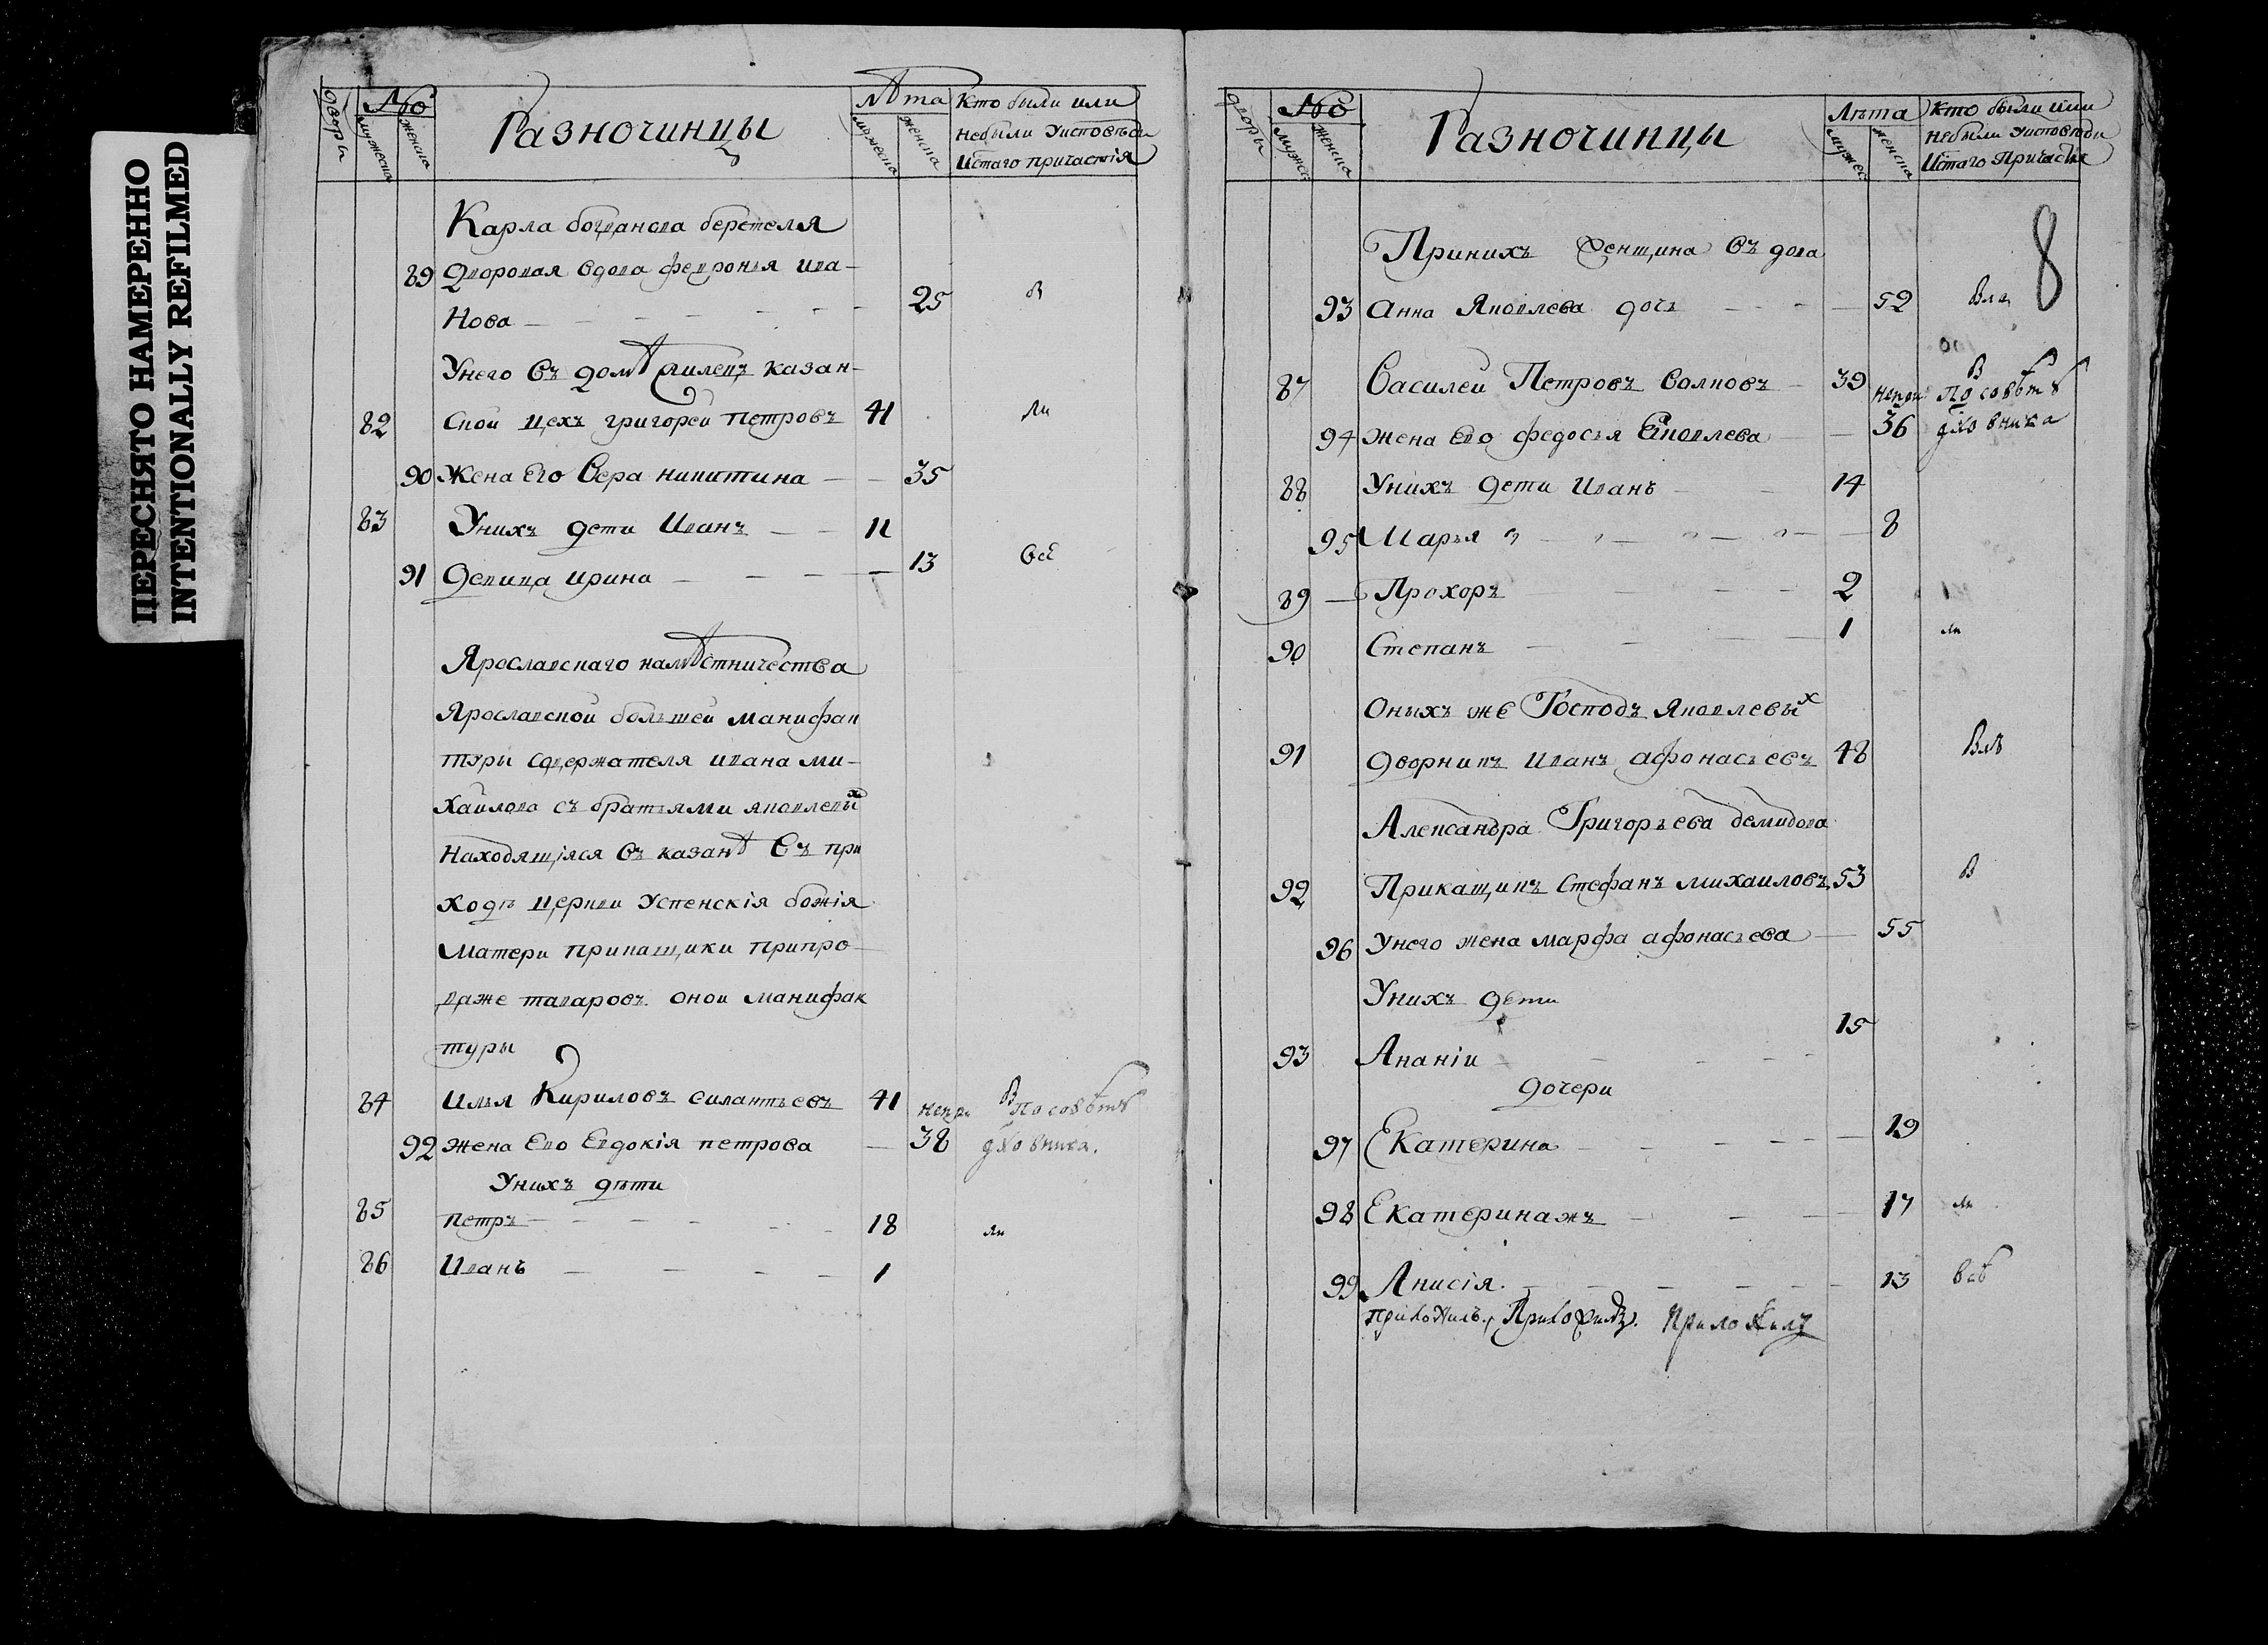 ПЕРЕСНЯТО НАМЕРЕННО
INTENTIONALLY REFILMED
дворы
№
мужеска
женска
Разночинцы
Лѣта
мужеска
женска
Кто были или
небыли Уисповѣди
Истаго причастія
Карла богданова
89 Дворовая вдова Ива-
Нова 25 В
Унего Въ домѣ казан-
82 Ской цехъ григореи петровъ 41
90 Жена Его Вера никитина 35
83 Унихъ дети Иванъ 11
91 Девица ирина 13 Все
Ярославскаго намѣстничества
Ярославской большеи манифак
туры содержателя ивана ми-
хаилова съ братьями яковлевых
Находящіяся Въ казанѣ Въ при
ходѣ церкви Успенскія божія
Матери прикащики припро
даже таваровъ онои манифак
туры
84 Илья Кириловъ силантьевъ 41 В По совѣтѣ
92 жена Ево Евдокія петрова 38 дхо вника.
Унихъ дѣти
85 петръ 18
86 Иванъ 1
дворы
№
мужес
женска
Разночинцы
Лѣта
мужес
женска
Кто были или
небыли Уисповѣди
Истаго Причастія
8
Принихъ Женщина Въ дова
93 Анна Яковлева дочь 52
87 Василеи Петровъ Волковъ 39 В По совѣтѣ
94 жена Ево федосья Яковлева 36 дхо вника
88 Унихъ дети Иванъ 14
95 Марья 8
89 Прохоръ 2
90 Степанъ 1
Оныхъ же Господъ Яковлевых
91 дворникъ иванъ афонасьевъ 48
Александра Григорьева демидова
92 Прикащикъ Стефанъ михаиловъ 53 В
96 Унего жена марфа афонасьева 55
Унихъ дѣти
93 Ананіи 15
дочери
97 Екатерина 19
98 Екатеринажъ 17
99 Анисія 13 всѣ
приложилъ, Приложилъ. приложилъ